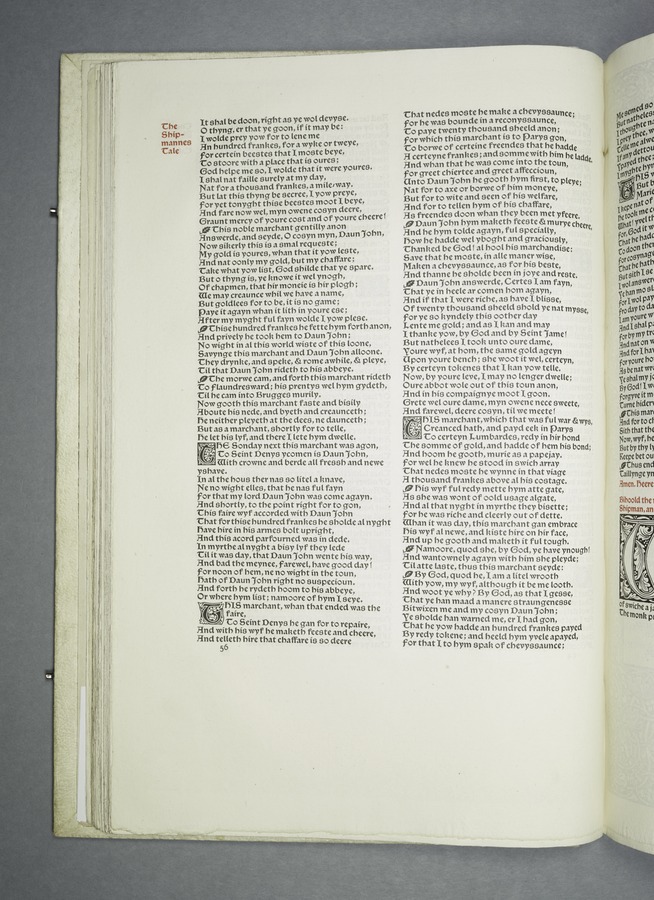 The
Ship-
mannes
Tale
It shal be doon, right as ye wol devyse.
O thyng, er that ye goon, if it may be:
I wolde prey yow for to lene me
An hundred frankes, for a wyke or tweye,
For certein beestes that I moste beye,
To stoore with a place that is oures;
God helpe me so, I wolde that it were youres.
I shal nat faille surely at my day,
Nat for a thousand frankes, a mile-way.
But lat this thyng be secree, I yow preye,
For yet tonyght thise beestes moot I beye,
And fare now wel, myn owene cosyn deere,
Graunt mercy of youre cost and of youre cheere!
This noble marchant gentilly anon
Answerde, and seyde, O cosyn myn, Daun John,
Now sikerly this is a smal requeste;
My gold is youres, whan that it yow leste,
And nat oonly my gold, but my chaffare;
Take what yow list, God shilde that ye spare.
But o thyng is, ye knowe it wel ynogh,
Of chapmen, that hir moneie is hir plogh;
We may creaunce whil we have a name,
But goldlees for to be, it is no game;
Paye it agayn whan it lith in youre ese;
After my myght ful fayn wolde I yow plese.
Thise hundred frankes he fette hym forth anon,
And prively he took hem to Daun John;
No wight in al this world wiste of this loone,
Savynge this marchant and Daun John alloone.
They drynke, and speke, & rome awhile, & pleye,
Til that Daun John rideth to his abbeye.
The morwe cam, and forth this marchant rideth
To Flaundresward; his prentys wel hym gydeth,
Til he cam into Brugges murily.
Now gooth this marchant faste and bisily
Aboute his nede, and byeth and creaunceth;
He neither pleyeth at the dees, ne daunceth;
But as a marchant, shortly for to telle,
He let his lyf, and there I lete hym dwelle.
THE Sonday next this marchant was agon,
To Seint Denys ycomen is Daun John,
With crowne and berde all fressh and newe
yshave.
In al the hous ther nas so litel a knave,
Ne no wight elles, that he nas ful fayn
For that my lord Daun John was come agayn.
And shortly, to the point right for to gon,
This faire wyf accorded with Daun John
That for thise hundred frankes he sholde al nyght
Have hire in his armes bolt upright,
And this acord parfourned was in dede.
In myrthe al nyght a bisy lyf they lede
Til it was day, that Daun John wente his way,
And bad the meynee, Farewel, have good day!
For noon of hem, ne no wight in the toun,
Hath of Daun John right no suspecioun.
And forth he rydeth hoom to his abbeye,
Or where hym list; namoore of hym I seye.
THIS marchant, whan that ended was the
faire,
To Seint Denys he gan for to repaire,
And with his wyf he maketh feeste and cheere,
And telleth hire that chaffare is so deere
56
That nedes moste he make a chevyssaunce;
For he was bounde in a reconyssaunce,
To paye twenty thousand sheeld anon;
For which this marchant is to Parys gon,
To borwe of certeine freendes that he hadde
A certeyne frankes; and somme with him he ladde.
And whan that he was come into the toun,
For greet chiertee and greet affeccioun,
Unto Daun John he gooth hym first, to pleye;
Nat for to axe or borwe of him moneye,
But for to wite and seen of his welfare,
And for to tellen hym of his chaffare,
As freendes doon whan they been met yfeere.
Daun John hym maketh feeste & murye cheere,
And he hym tolde agayn, ful specially,
How he hadde wel yboght and graciously,
Thanked be God! al hool his marchandise:
Save that he moste, in alle maner wise,
Maken a chevyssaunce, as for his beste,
And thanne he sholde been in joye and reste.
Daun John answerde, Certes I am fayn,
That ye in heele ar comen hom agayn,
And if that I were riche, as have I blisse,
Of twenty thousand sheeld shold ye nat mysse,
For ye so kyndely this oother day
Lente me gold; and as I kan and may
I thanke yow, by God and by Seint Jame!
But nathelees I took unto oure dame,
Youre wyf, at hom, the same gold ageyn
Upon youre bench; she woot it wel, certeyn,
By certeyn tokenes that I kan yow telle.
Now, by youre leve, I may no lenger dwelle;
Oure abbot wole out of this toun anon,
And in his compaignye moot I goon.
Grete wel oure dame, myn owene nece sweete,
And farewel, deere cosyn, til we meete!
THIS marchant, which that was ful war & wys,
Creanced hath, and payd eek in Parys
To certeyn Lumbardes, redy in hir hond
The somme of gold, and hadde of hem his bond;
And hoom he gooth, murie as a papejay.
For wel he knew he stood in swich array
That nedes moste he wynne in that viage
A thousand frankes above al his costage.
His wyf ful redy mette hym atte gate,
As she was wont of oold usage algate,
And al that nyght in myrthe they bisette;
For he was riche and cleerly out of dette.
Whan it was day, this marchant gan embrace
His wyf al newe, and kiste hir on hir face,
And up he gooth and maketh it ful tough.
Namoore, quod she, by God, ye have ynough!
And wantownely agayn with him she pleyde;
Til atte laste, thus this marchant seyde:
By God, quod he, I am a litel wrooth
With yow, my wyf, although it be me looth.
And woot ye why? By God, as that I gesse,
That ye han maad a manere straungenesse
Bitwixen me and my cosyn Daun John;
Ye sholde han warned me, er I had gon,
That he yow hadde an hundred frankes payed
By redy tokene; and heeld hym yvele apayed,
For that I to hym spak of chevyssaunce;